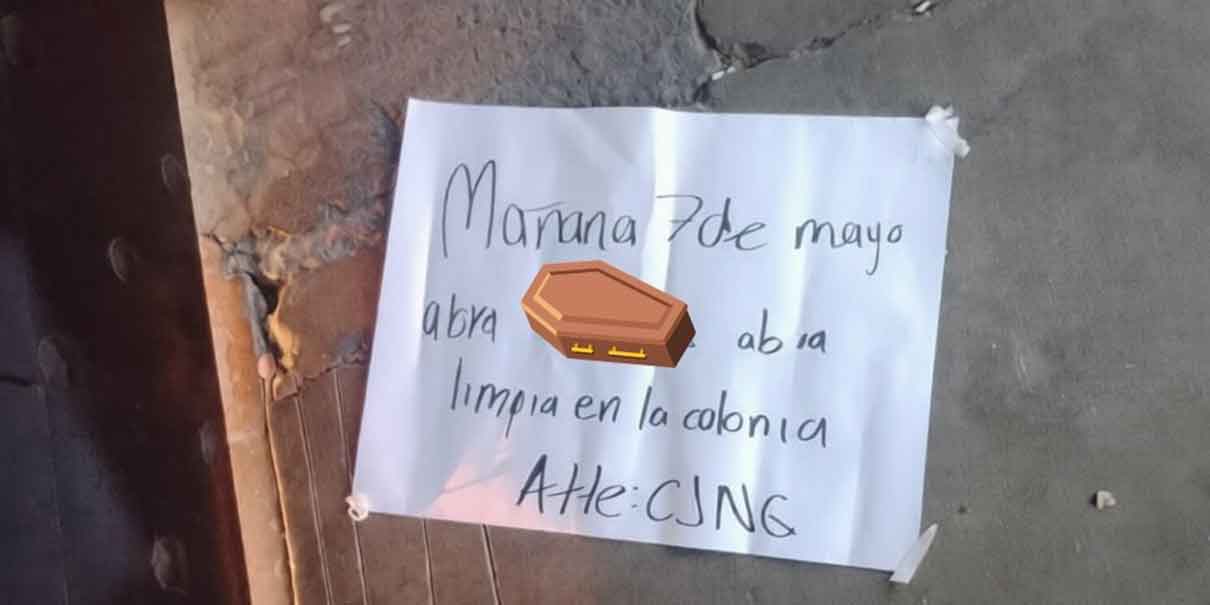 Mañana 7 de mayo
abra abra
limpia en la colonia
Atte: CJNG